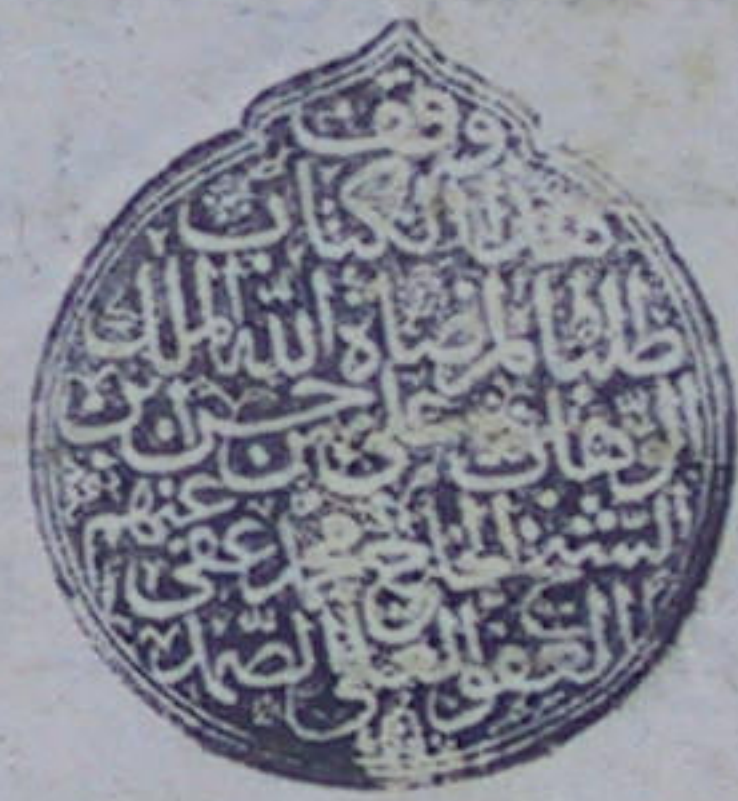 وقف
هذا الكتاب
طلبا لمرضاة الله الملك
الوهاب علي بن حسن بن
الشيخ الحاج محمد عفى عنهم
العفو العلي الصمد